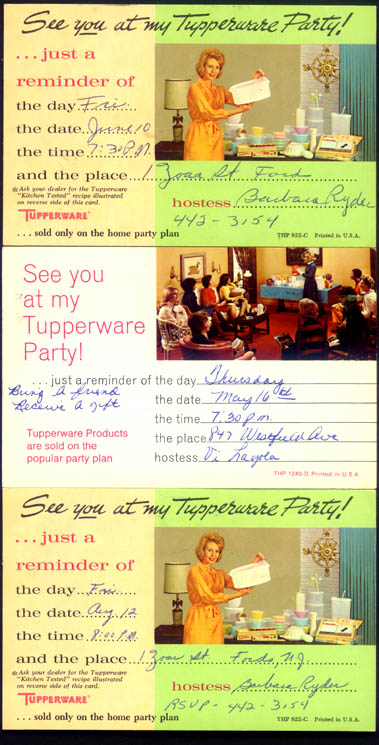 See you at my Tupperware Party!
...just a
reminder of
the day Fri.
the date June 10
the time 7:30 P.M.
and the place 1 Zoar St. Ford
*Ask your dealer for the Tupperware
"Kitchen Tested" recipe illustrated
on reverse side of this card.
hostess Barbara Ryder
TUPPERWARE
442-3154
...sold only on the home party plan
THP 822-C Printed in U.S.A.
See you
at my
Tupperware
Party!
...just a reminder of the day Thursday
Bring A friend
Receive A gift
the date May 16th
the time 7:30 p.m.
Tupperware Products
are sold on the
popular party plan
the place 847 Westfield Ave
hostess Vi
THP 1240-D Printed in U.S.A.
See you at my Tupperware Party!
...just a
reminder of
the day Fri.
the date Aug. 12
the time 8:00 P.M.
and the place 1 Zoar St. Fords, N.J.
*Ask your dealer for the Tupperware
"Kitchen Tested" recipe illustrated
on reverse side of this card.
hostess Barbara Ryder
TUPPERWARE
RSVP - 442-3154
...sold only on the home party plan
THP 822-C Printed in U.S.A.